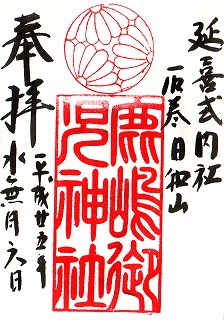 延喜式内社
石巻日和山
鹿嶋御
児神社
奉拝
平成廿五年
水無月六日